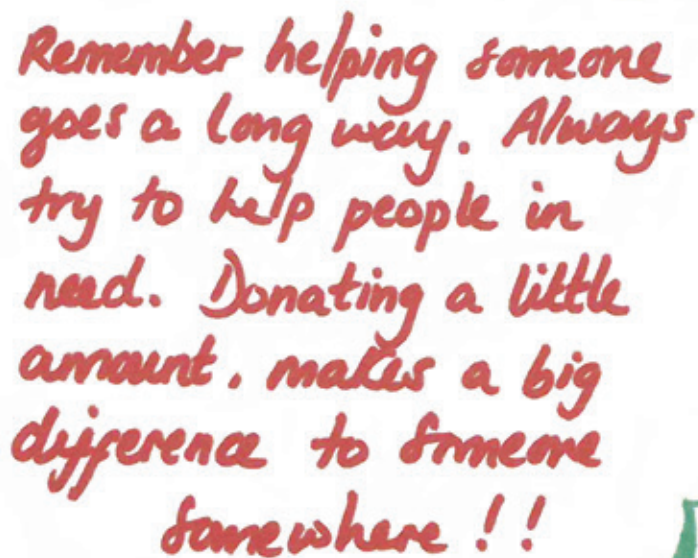 Remember helping someone
goes a long way. Always
try to help people in
need. Donating a little
amount. makes a big
difference to someone
somewhere!!